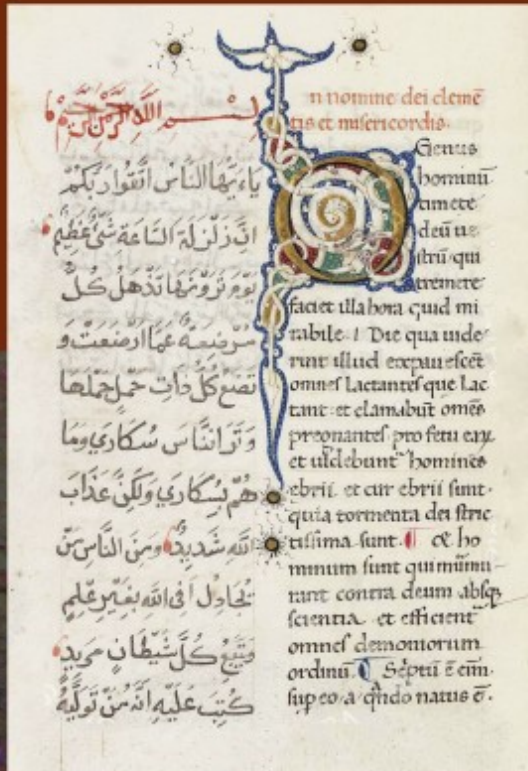 بِسْمِ اللَّهِ الرَّحْمٰنِ الرَّحِيْمِ
يَاءَيُّهَا النَّاسُ اتَّقُوا رَبَّكُمْ
اِنَّ زَلْزَلَةَ السَّاعَةِ شَئٌ عَظِيْمٌ
يَوْمَ تَرَوْنَهَا تَذْهَلُ كُلُّ
مُرْضِعَةٍ عَمَّا اَرْضَعَتْ وَ
تَضَعُ كُلُّ ذَاتِ حَمْلٍ حَمْلَهَا
وَتَرَا النَّاسَ سُكَارَي وَمَا
هُمْ بِسُكَارَي وَلَكِنَّ عَذَابَ
اللَّهِ شَدِيدٌ وَمِنَ النَّاسِ مَنْ
يُجَادِلُ فِى اللَّهِ بِغَيْرِ عِلْمٍ
وَيَتَّبِعُ كُلَّ شَيْطَانٍ مَرِيدٍ
كُتِبَ عَلَيْهِ اَنَّهُ مَنْ تَوَلَّاهُ
In nomine dei clemē
tis et misericordis.
O Genus
hominū
timete
deū ue
strū qui
tremere
faciet illa hora quid mi
rabile. Die qua uide
rint illud expauescēt
omnes lactantes que lac
tant et clamabūt omēs
pregnantes pro fetu eaꝝ
et uidebunt homines
ebrii et cur ebrii sunt
quia tormenta dei stric
tissima sunt. ¶ & ho
minum sunt qui murmu
rant contra deum absqꝫ
scientia et efficient
omnes demoniorum
ordinū. ¶ Septū ē eīm
sup eo a qūdo natus ē.